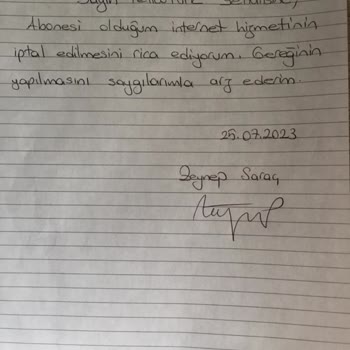 Sayın
Abonesi olduğum internet hizmetinin
iptal edilmesini rica ediyorum. Gereğinin
yapılmasını saygılarımla arz ederim.
25.07.2023
Zeynep Saraç